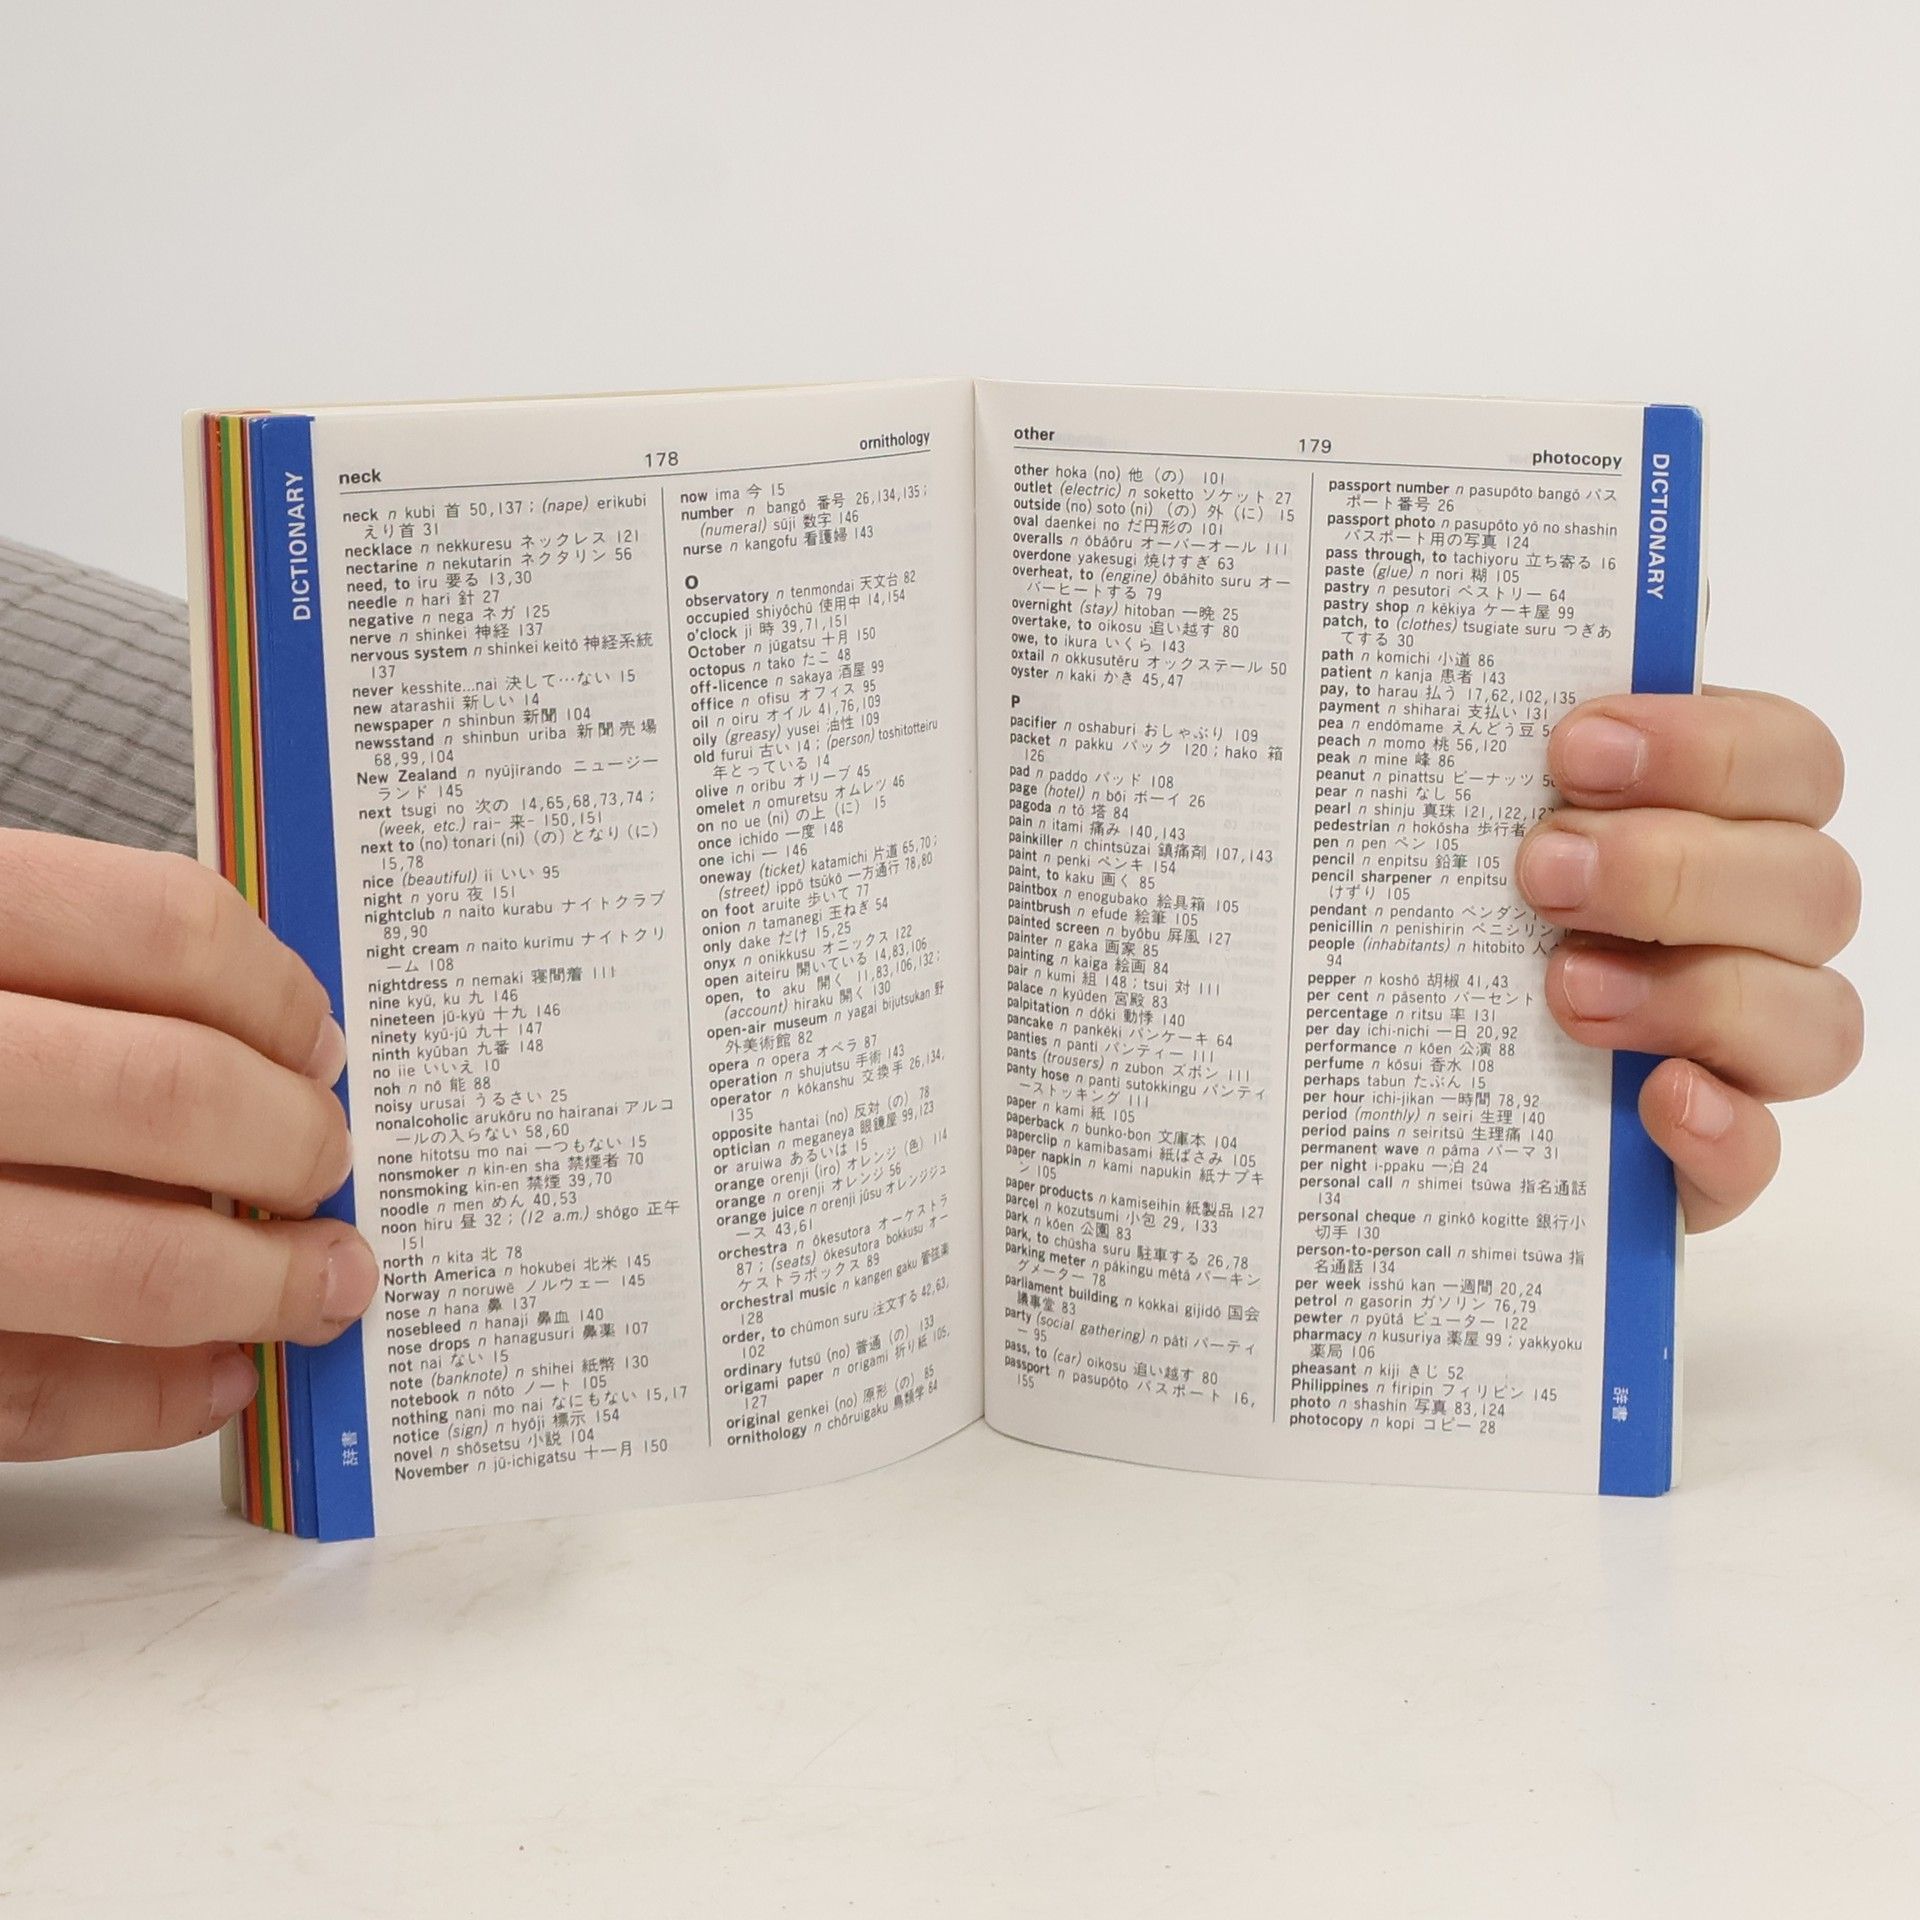 DICTIONARY
辞書
neck
178
ornithology
neck n kubi 首 50,137; (nape) erikubi
えり首 31
necklace n nekkuresu ネックレス 121
nectarine n nekutarin ネクタリン 56
need, to iru 要る 13,30
needle n hari 針 27
negative n nega ネガ 125
nerve n shinkei 神経 137
nervous system n shinkei keitō 神経系統
137
never kesshite...nai 決して…ない 15
new atarashii 新しい 14
newspaper n shinbun 新聞 104
newsstand n shinbun uriba 新聞売場
68,99,104
New Zealand n nyūjirando ニュージー
ランド 145
next tsugi no 次の 14,65,68,73,74;
(week, etc.) rai- 来- 150,151
next to (no) tonari (ni) (の) となり (に)
15,78
nice (beautiful) ii いい 95
night n yoru 夜 151
nightclub n naito kurabu ナイトクラブ
89,90
night cream n naito kurīmu ナイトクリ
ーム 108
nightdress n nemaki 寝間着 111
nine kyū, ku 九 146
nineteen jū-kyū 十九 146
ninety kyū-jū 九十 147
ninth kyūban 九番 148
no iie いいえ 10
noh n nō 能 88
noisy urusai うるさい 25
nonalcoholic arukōru no hairanai アルコ
ールの入らない 58,60
none hitotsu mo nai 一つもない 15
nonsmoker n kin-en sha 禁煙者 70
nonsmoking kin-en 禁煙 39,70
noodle n men めん 40,53
noon hiru 昼 32; (12 a.m.) shōgo 正午
151
north n kita 北 78
North America n hokubei 北米 145
Norway n noruwē ノルウェー 145
nose n hana 鼻 137
nosebleed n hanaji 鼻血 140
nose drops n hanagusuri 鼻薬 107
not nai ない 15
note (banknote) n shihei 紙幣 130
notebook n nōto ノート 105
nothing nani mo nai なにもない 15,17
notice (sign) n hyōji 標示 154
novel n shōsetsu 小説 104
November n jū-ichigatsu 十一月 150
now ima 今 15
number n bangō 番号 26,134,135;
(numeral) sūji 数字 146
nurse n kangofu 看護婦 143
O
observatory n tenmondai 天文台 82
occupied shiyōchū 使用中 14,154
o'clock ji 時 39,71,151
October n jūgatsu 十月 150
octopus n tako たこ 48
off-licence n sakaya 酒屋 99
office n ofisu オフィス 95
oil n oiru オイル 41,76,109
oily (greasy) yusei 油性 109
old furui 古い 14; (person) toshitotteiru
年とっている 14
olive n orību オリーブ 45
omelet n omuretsu オムレツ 46
on no ue (ni) の上 (に) 15
once ichido 一度 148
one ichi 一 146
oneway (ticket) katamichi 片道 65,70;
(street) ippō tsūkō 一方通行 78,80
on foot aruite 歩いて 77
onion n tamanegi 玉ねぎ 54
only dake だけ 15,25
onyx n onikkusu オニックス 122
open aiteiru 開いている 14,83,106
open, to aku 開く 11,83,106,132;
(account) hiraku 開く 130
open-air museum n yagai bijutsukan 野
外美術館 82
opera n opera オペラ 87
operation n shujutsu 手術 143
operator n kōkanshu 交換手 26,134,
135
opposite hantai (no) 反対 (の) 78
optician n meganeya 眼鏡屋 99,123
or aruiwa あるいは 15
orange orenji (iro) オレンジ (色) 114
orange n orenji オレンジ 56
orange juice n orenji jūsu オレンジジュ
ース 43,61
orchestra n ōkesutora オーケストラ
87; (seats) ōkesutora bokkusu オー
ケストラボックス 89
orchestral music n kangen gaku 管弦楽
128
order, to chūmon suru 注文する 42,63,
102
ordinary futsū (no) 普通 (の) 133
origami paper n origami 折り紙 105,
127
original genkei (no) 原形 (の) 85
ornithology n chōruigaku 鳥類学 84
other
179
photocopy
other hoka (no) 他 (の) 101
outlet (electric) n soketto ソケット 27
outside (no) soto (ni) (の) 外 (に) 15
oval daenkei no だ円形の 101
overalls n ōbāōru オーバーオール 111
overdone yakesugi 焼けすぎ 63
overheat, to (engine) ōbāhīto suru オー
バーヒートする 79
overnight (stay) hitoban 一晩 25
overtake, to oikosu 追い越す 80
owe, to ikura いくら 143
oxtail n okkusutēru オックステール 50
oyster n kaki かき 45,47
P
pacifier n oshaburi おしゃぶり 109
packet n pakku パック 120; hako 箱
126
pad n paddo パッド 108
page (hotel) n bōi ボーイ 26
pagoda n tō 塔 84
pain n itami 痛み 140,143
painkiller n chintsūzai 鎮痛剤 107,143
paint n penki ペンキ 154
paint, to kaku 画く 85
paintbox n enogubako 絵具箱 105
paintbrush n efude 絵筆 105
painted screen n byōbu 屏風 127
painter n gaka 画家 85
painting n kaiga 絵画 84
pair n kumi 組 148; tsui 対 111
palace n kyūden 宮殿 83
palpitation n dōki 動悸 140
pancake n pankēki パンケーキ 64
panties n pantī パンティー 111
pants (trousers) n zubon ズボン 111
panty hose n panti sutokkingu パンティ
ーストッキング 111
paper n kami 紙 105
paperback n bunko-bon 文庫本 104
paperclip n kamibasami 紙ばさみ 105
paper napkin n kami napukin 紙ナプキ
ン 105
paper products n kamiseihin 紙製品 127
parcel n kozutsumi 小包 29, 133
park n kōen 公園 83
park, to chūsha suru 駐車する 26,78
parking meter n pākingu mētā パーキン
グメーター 78
parliament building n kokkai gijidō 国会
議事堂 83
party (social gathering) n pāti パーティ
ー 95
pass, to (car) oikosu 追い越す 80
passport n pasupōto パスポート 16,
155
passport number n pasupōto bangō パス
ポート番号 26
passport photo n pasupōto yō no shashin
パスポート用の写真 124
pass through, to tachiyoru 立ち寄る 16
paste (glue) n nori 糊 105
pastry n pesutorī ペストリー 64
pastry shop n kēkiya ケーキ屋 99
patch, to (clothes) tsugiate suru つぎあ
てする 30
path n komichi 小道 86
patient n kanja 患者 143
pay, to harau 払う 17,62,102,135
payment n shiharai 支払い 131
pea n endōmame えんどう豆
peach n momo 桃 56,120
peak n mine 峰 86
peanut n pinattsu ピーナッツ
pear n nashi なし 56
pearl n shinju 真珠 121,122,127
pedestrian n hokōsha 歩行者
pen n pen ペン 105
pencil n enpitsu 鉛筆 105
pencil sharpener n enpitsu
けずり 105
pendant n pendanto
penicillin n penishirin ペニシリン
people (inhabitants) n hitobito
94
pepper n koshō 胡椒 41,43
per cent n pāsento パーセント
percentage n ritsu 率 131
per day ichi-nichi 一日 20,92
performance n kōen 公演 88
perfume n kōsui 香水 108
perhaps tabun たぶん 15
per hour ichi-jikan 一時間 78,92
period (monthly) n seiri 生理 140
period pains n seiritsū 生理痛 140
permanent wave n pāma パーマ 31
per night i-ppaku 一泊 24
personal call n shimei tsūwa 指名通話
134
personal cheque n ginkō kogitte 銀行小
切手 130
person-to-person call n shimei tsūwa 指
名通話 134
per week isshū kan 一週間 20,24
petrol n gasorin ガソリン 76,79
pewter n pyūtā ピューター 122
pharmacy n kusuriya 薬屋 99; yakkyoku
薬局 106
pheasant n kiji きじ 52
Philippines n firipin フィリピン 145
photo n shashin 写真 83,124
photocopy n kopī コピー 28
DICTIONARY
辞書